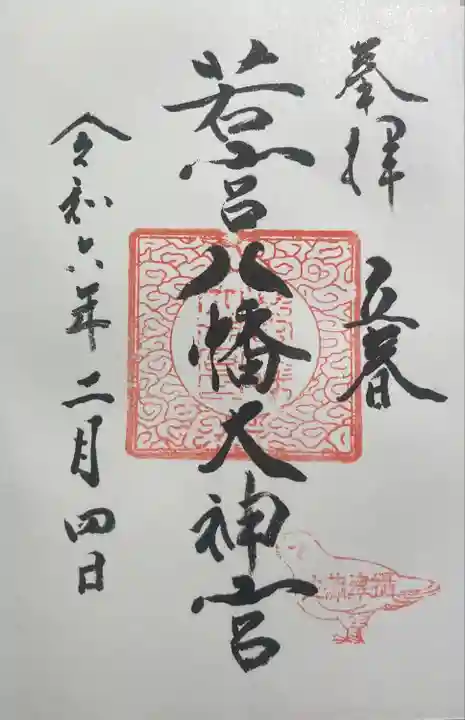 奉拝　立春
若宮八幡大神宮
令和六年二月四日